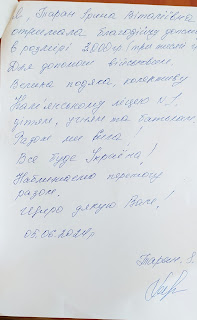 Я, Таран Ірина Віталіївна
отримала благодійну допом
в розмірі 3,000гр (три тисячі г
Для допомоги військовим.
Велика подяка, колективу
Кам'янському ліцею N1,
дітям, учням та батькам.
Разом ми Сила!
Все буде Україна!
Наближаємо перемогу
разом.
Щиро дякую Вам!
05.06.2024р
Таран. І.